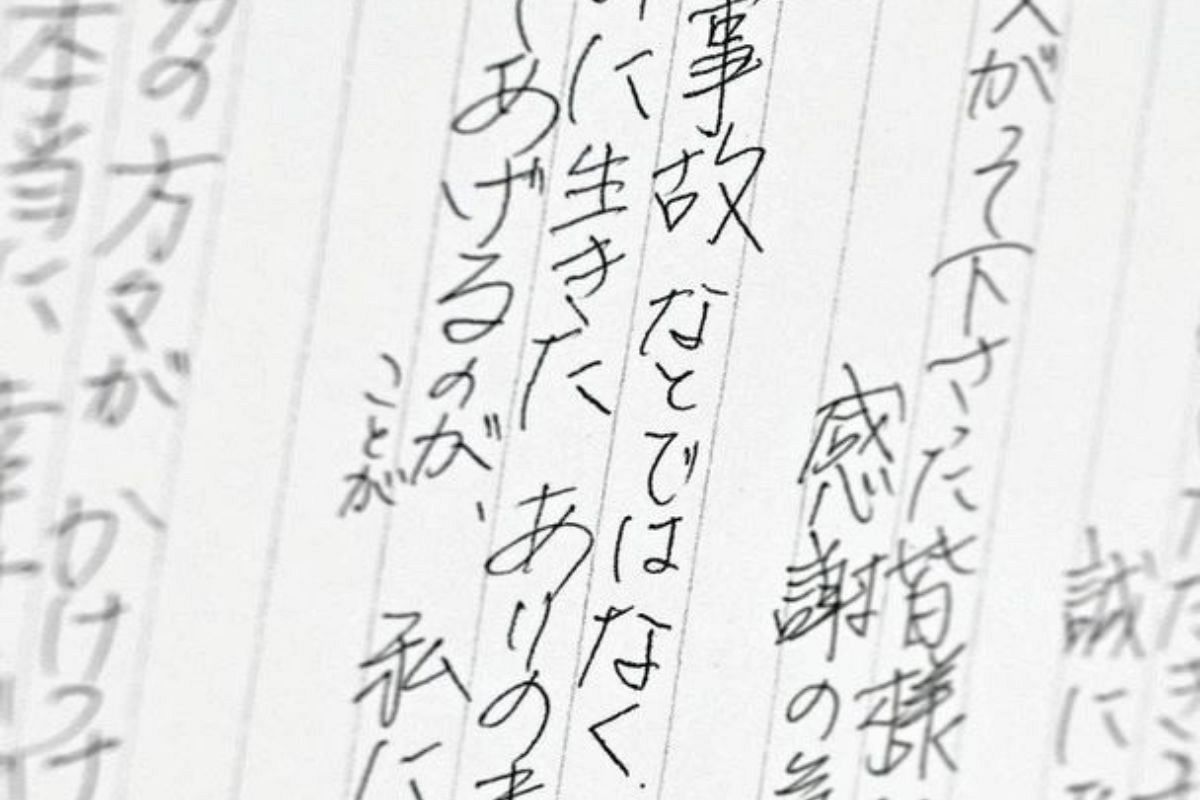 誠に
がそて下さた皆様
感謝の
事故なとではなく
に生きた ありのま
あげるのが、
ことが 私に
の方々が かけつけ
本当に